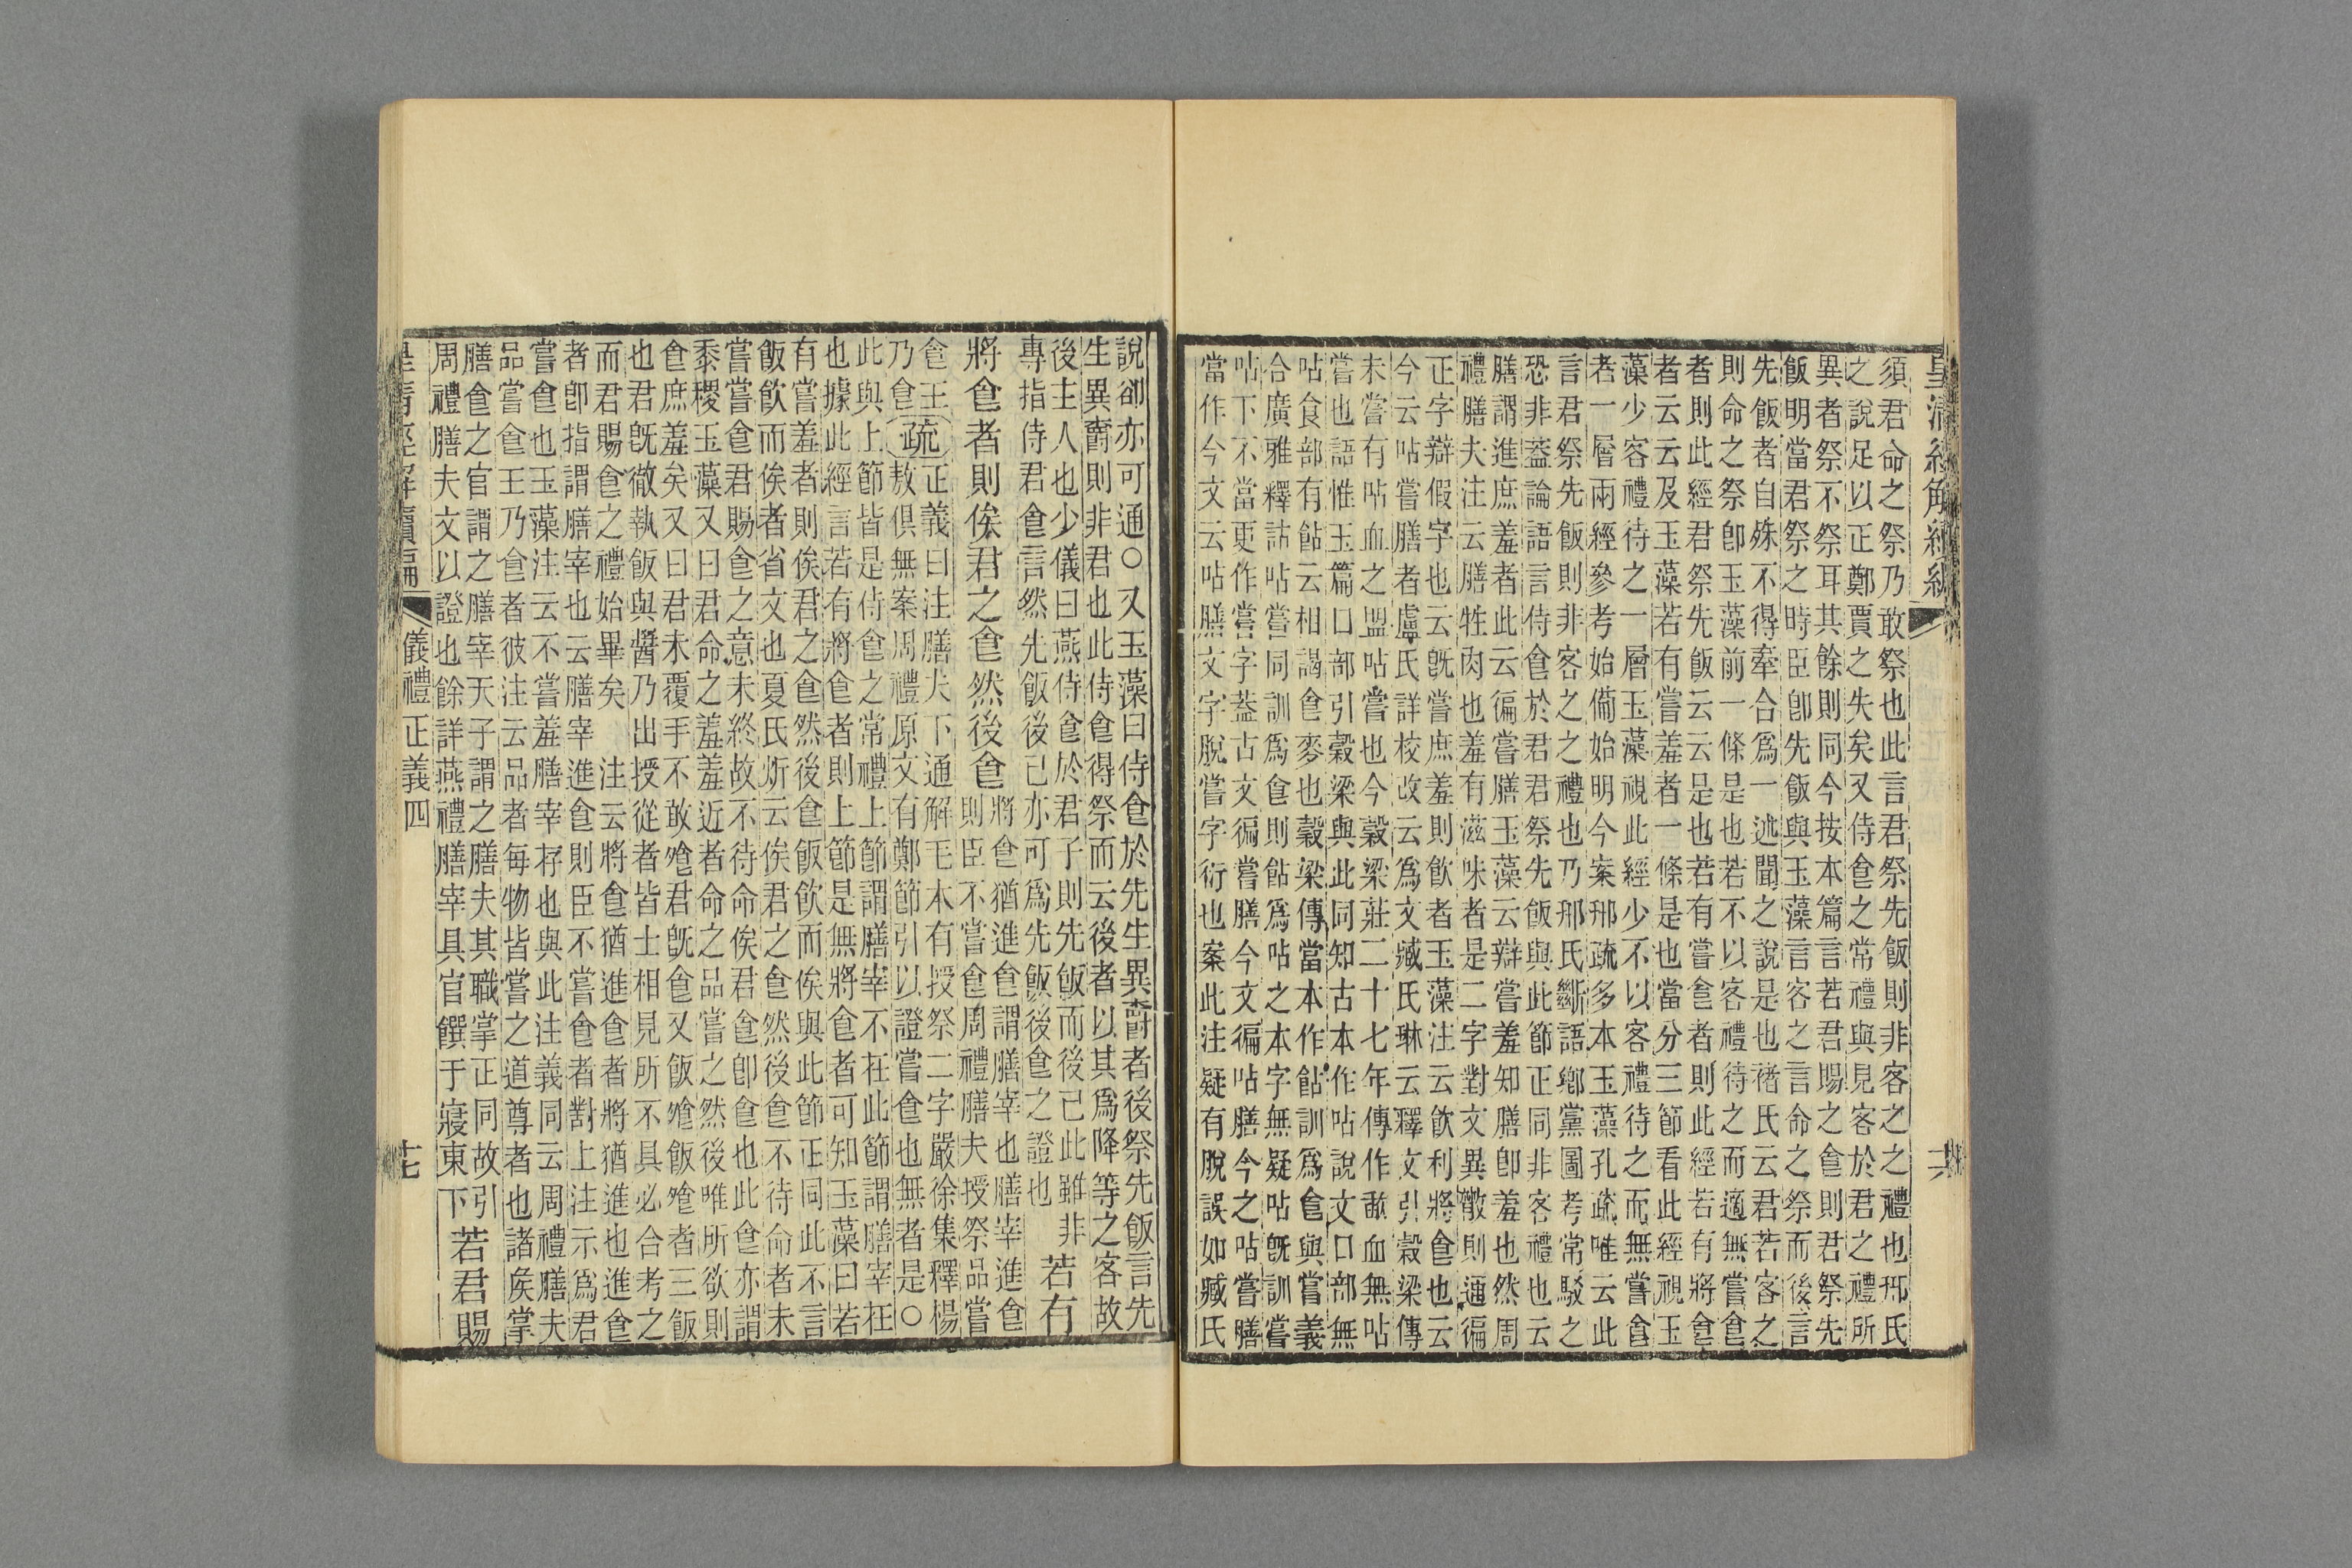 須君命之祭乃敢祭也此言君祭先飯則非客之之禮也邢氏
之說足以正鄭賈之失矣又侍𠊊之常禮與見客於君之禮所
異者祭不祭耳其餘則同今按本篇言若君賜之𠊊則君祭先
飯明當君祭之時臣卽先飯與玉藻言客之言命之祭而後言
先飯者自殊不得牽合爲一述聞之說是也褚氏云君若客之
則命之祭卽玉藻前一條是也若不以客禮待之而適無嘗𠊊
者則此經君祭先飯云云是也若有嘗𠊊者則此經若有將𠊊
者云云及玉藻若有嘗羞者一條是也當分三節看此經視玉
藻少客禮待之一層玉藻視此經少不以客禮待之而無嘗𠊊
者一層兩經參考始備始明今案邢疏多本玉藻孔疏唯云此
言君祭先飯則非客之之禮也乃邢氏斷語鄉黨圖考常駁之
恐非葢論語言侍𠊊於君君祭先飯與此節正同非客禮也云
膳謂進庶羞者此云徧嘗膳玉藻云辯嘗羞知膳卽羞也然周
禮膳夫注云膳牲肉也羞有滋味者是二字對文異散則通徧
正字辯假字也云旣嘗庶羞則飲者玉藻注云飲利將𠊊也云
今云呫嘗膳者盧氏詳校改云爲文臧氏琳云釋文引穀梁傳
未嘗有呫血之盟呫嘗也今穀梁莊二十七年傳作歃血無呫
嘗也語惟玉篇口部引穀梁與此同知古本作呫說文口部無
呫食部有䬯云相謁𠊊麥也穀梁傳當本作䬯訓爲𠊊與嘗義
合廣雅釋詁呫嘗同訓爲𠊊則䬯爲呫之本字無疑呫旣訓嘗
呫下不當更作嘗字葢古文徧嘗膳今文徧呫膳今之呫嘗膳
當作今文云呫膳文字脫嘗字衍也案此注疑有脫誤如臧氏
說卻亦可通○又玉藻曰侍𠊊於先生異爵者後祭先飯言先
生異爵則非君也此侍𠊊得祭而云後者以其爲降等之客故
後主人也少儀曰燕侍𠊊於君子則先飯而後已此雖非
專指侍君𠊊言然先飯後已亦可爲先飯後𠊊之證也
若有
將𠊊者則俟君之𠊊然後𠊊
將𠊊猶進𠊊謂膳宰也膳宰進𠊊
則臣不嘗𠊊周禮膳夫授祭品嘗
𠊊王
乃𠊊
疏
正義曰注膳夫下通解毛本有授祭二字嚴徐集釋楊
敖俱無案周禮原文有鄭節引以證嘗𠊊也無者是○
此與上節皆是侍𠊊之常禮上節謂膳宰不在此節謂膳宰在
也據此經言若有將𠊊者則上節是無將𠊊者可知玉藻曰若
有嘗羞者則俟君之𠊊然後𠊊飯飲而俟與此節正同此不言
飯飲而俟者省文也夏氏炘云俟君之𠊊然後𠊊不待命者未
嘗嘗𠊊君賜𠊊之意未終故不待命俟君𠊊卽𠊊也此𠊊亦謂
黍稷玉藻又曰君命之羞羞近者命之品嘗之然後唯所欲則
𠊊庶羞矣又曰君未覆手不敢飧君旣𠊊又飯飧飯飧者三飯
也君旣徹執飯與醬乃出授從者皆士相見所不具必合考之
而君賜𠊊之禮始畢矣　注云將𠊊猶進𠊊者將猶進也進𠊊
者卽指謂膳宰也云膳宰進𠊊則臣不嘗𠊊者對上注示爲君
嘗𠊊也玉藻注云不嘗羞膳宰存也與此注義同云周禮膳夫
品嘗𠊊王乃𠊊者彼注云品者每物皆嘗之道尊者也諸矦掌
膳𠊊之官謂之膳宰天子謂之膳夫其職掌正同故引
周禮膳夫文以證也餘詳燕禮膳宰具官饌于寢東下
若君賜
儀禮正義四